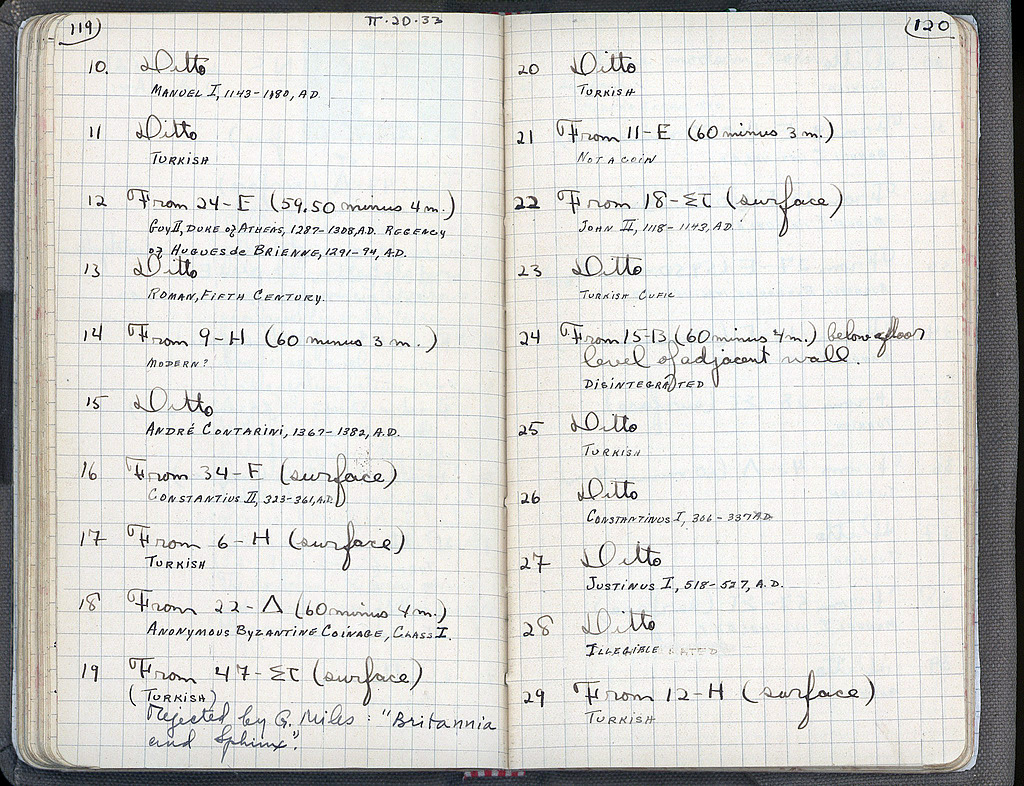 119
II·20·33
10. Ditto
MANUEL I, 1143-1180, A.D.
11 Ditto
TURKISH
12 From 24-E (59.50 minus 4 m.)
GUY II, DUKE of ATHENS, 1287-1308, A.D. REGENCY
of HUGUES de BRIENNE, 1291-94, A.D.
13 Ditto
ROMAN, FIFTH CENTURY.
14 From 9-H (60 minus 3 m.)
MODERN?
15 Ditto
ANDRÉ CONTARINI, 1367-1382, A.D.
16 From 34-F (surface)
CONSTANTIUS II, 323-361, A.D.
17 From 6-H (surface)
TURKISH
18 From 22-Λ (60 minus 4 m.)
ANONYMOUS BYZANTINE COINAGE, CLASS I.
19 From 47-ΣΤ (surface)
(TURKISH)
Rejected by G. Miles: "Britannia
and Sphinx".
120
20 Ditto
TURKISH
21 From 11-E (60 minus 3 m.)
NOT A COIN
22 From 18-ΣΤ (surface)
JOHN II, 1118-1143, A.D.
23 Ditto
TURKISH CUFIC
24 From 15-B (60 minus 4 m.) below floor
level of adjacent wall.
DISINTEGRATED
25 Ditto
TURKISH
26 Ditto
CONSTANTINUS I, 306-337 A.D.
27 Ditto
JUSTINUS I, 518-527, A.D.
28 Ditto
ILLEGIBLE
29 From 12-H (surface)
TURKISH